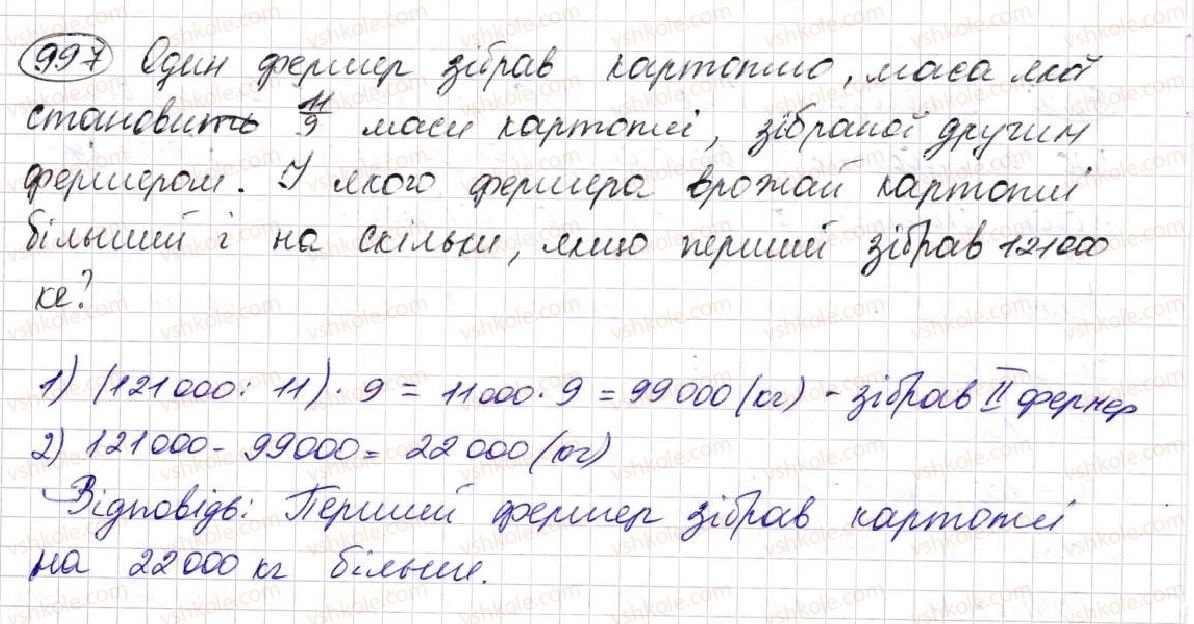 997 Один фермер зібрав картоплю, маса якої
становить 11/9 маси картоплі, зібраної другим
фермером. У якого фермера врожай картоплі
більший і на скільки, якщо перший зібрав 121000
кг?
1) (121000 : 11) · 9 = 11000 · 9 = 99000 (кг) - зібрав II фермер
2) 121000 - 99000 = 22000 (кг)
Відповідь: Перший фермер зібрав картоплі
на 22000 кг більше.